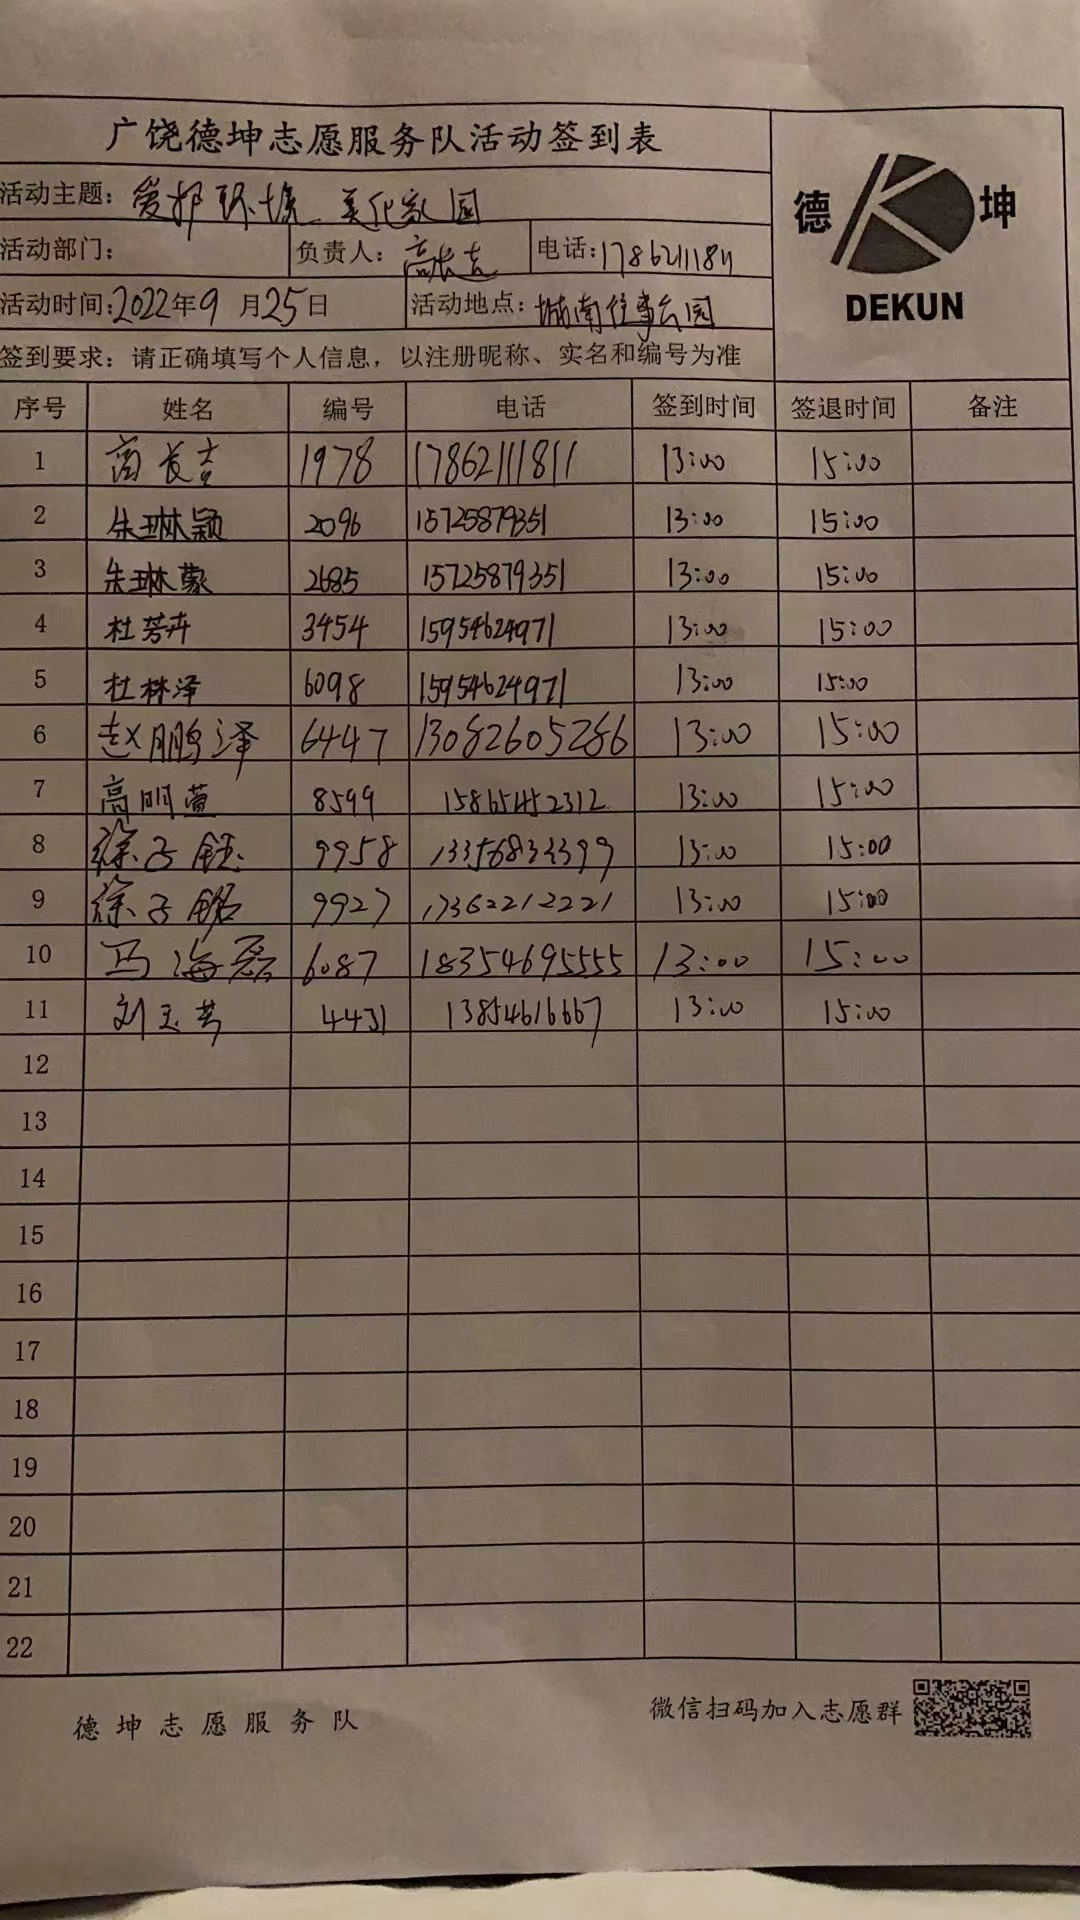 广饶德坤志愿服务队活动签到表
德 坤
DEKUN
活动主题：爱护环境 美化家园
活动部门： 负责人：高长吉 电话：17862111811
活动时间：2022年9月25日 活动地点：城南往事公园
签到要求：请正确填写个人信息，以注册昵称、实名和编号为准
序号 姓名 编号 电话 签到时间 签退时间 备注
1 高长吉 1978 17862111811 13:00 15:00
2 朱琳颖 2096 15725879351 13:00 15:00
3 朱琳蒙 2685 15725879351 13:00 15:00
4 杜芳卉 3454 15954624971 13:00 15:00
5 杜林泽 6098 15954624971 13:00 15:00
6 赵鹏泽 6447 13082605286 13:00 15:00
7 高明萱 8599 15865452312 13:00 15:00
8 徐子钰 9958 13:00 15:00
9 徐子铭 9927 17362212221 13:00 15:00
10 马海磊 6087 18354695555 13:00 15:00
11 刘玉芳 4431 13854616667 13:00 15:00
12
13
14
15
16
17
18
19
20
21
22
德坤志愿服务队 微信扫码加入志愿群